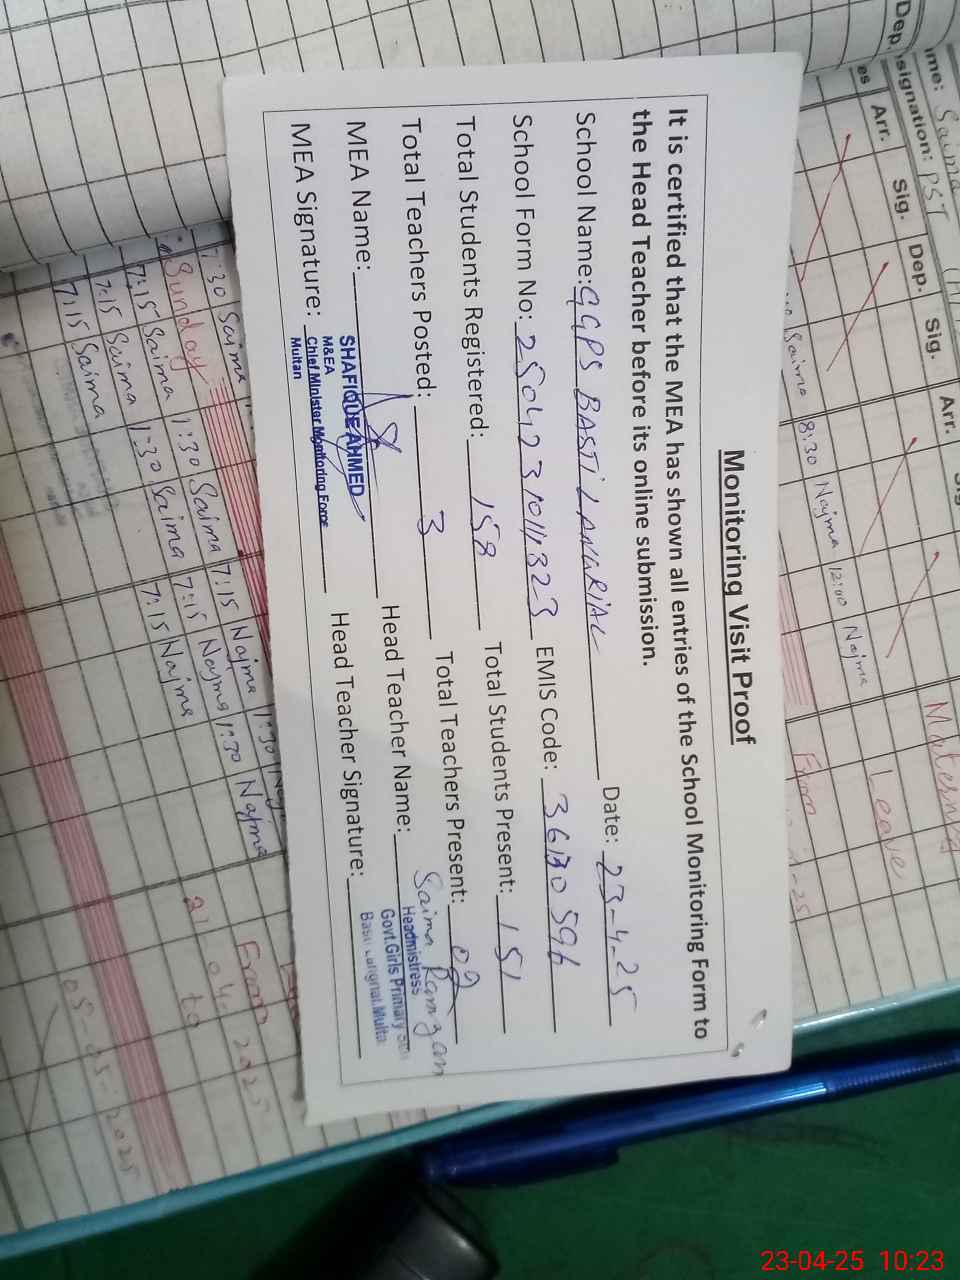 Monitoring Visit Proof
It is certified that the MEA has shown all entries of the School Monitoring Form to
the Head Teacher before its online submission.
School Name: GGPS BASTI Date: 23-4-25
School Form No: EMIS Code: 36130596
Total Students Registered: 158 Total Students Present: 151
Total Teachers Posted: 3 Total Teachers Present: 02
MEA Name: Head Teacher Name: Saima Ramzan
SHAFIQUE AHMED
M&EA
Chief Minister Monitoring Force
Multan
MEA Signature: Head Teacher Signature:
Headmistress
Govt.Girls Primary
Multa
Dep.
Designation: PST
Saima
Arr. Sig. Dep. Sig. Arr.
Saima 8:30 Najma 12:00 Najma
Maternal
Leave
From
7:30 Saima
Sunday
7:15 Saima 1:30 Saima 7:15 Najma 1:30
7:15 Saima 1:30 Saima 7:15 Najma 1:30 Najma
7:15 Saima 7:15 Najma
From
to
05-05-2025
23-04-25 10:23